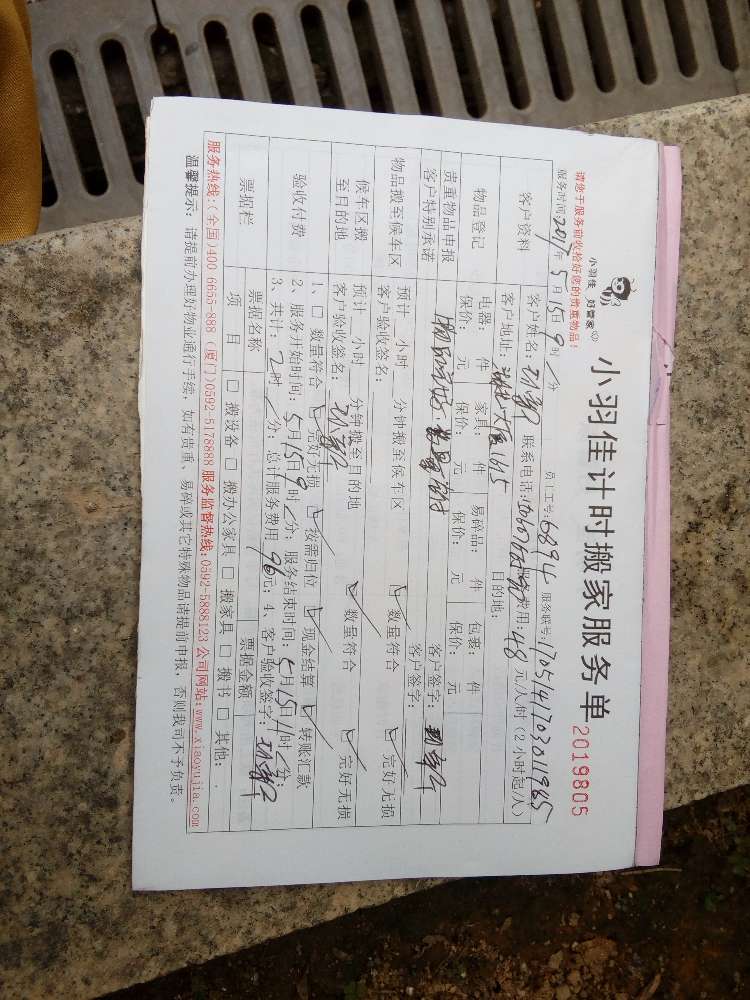 小羽佳 好管家
小羽佳计时搬家服务单
2019805
请您于服务前收拾好您的贵重物品!
员工工号: 6894 服务联号: 170514170301
服务时间 2017年 5月 15日 9时 分
客户资料
客户姓名: 联系电话: 服务费用: 48 元/人/时 (2小时起/人)
客户地址: 1615 目的地:
物品登记
电器: 件 家具: 件 易碎品: 件 包裹: 件
保价: 元 保价: 元 保价: 元 保价: 元
贵重物品申报
客户特别承诺
客户签字:
客户签字:
物品搬至候车区
预计 小时 分钟搬至候车区 数量符合 完好无损
客户验收签名:
候车区搬
至目的地
预计 小时 分钟搬至目的地 数量符合 完好无损
客户验收签名:
验收付费
1、□ 数量符合 完好无损 按需归位 现金结算 转账汇款
2、服务开始时间: 5月15日9时 分; 服务结束时间: 5月15日11时 分;
3、共计: 2时 分; 总计服务费用 96元; 4、客户验收签字:
票据栏
票据名称 票据金额
项目 □ 搬设备 □ 搬办公家具 □ 搬家具 □ 搬书 □ 其他:
服务热线:(全国)400-6655-888 (厦门)0592-5178888 服务监督热线:0592-5888123 公司网站:www.xiaoyujia.com
温馨提示: 请提前办理好物业通行手续, 如有贵重、易碎或其它特殊物品请提前申报, 否则我司不予负责。